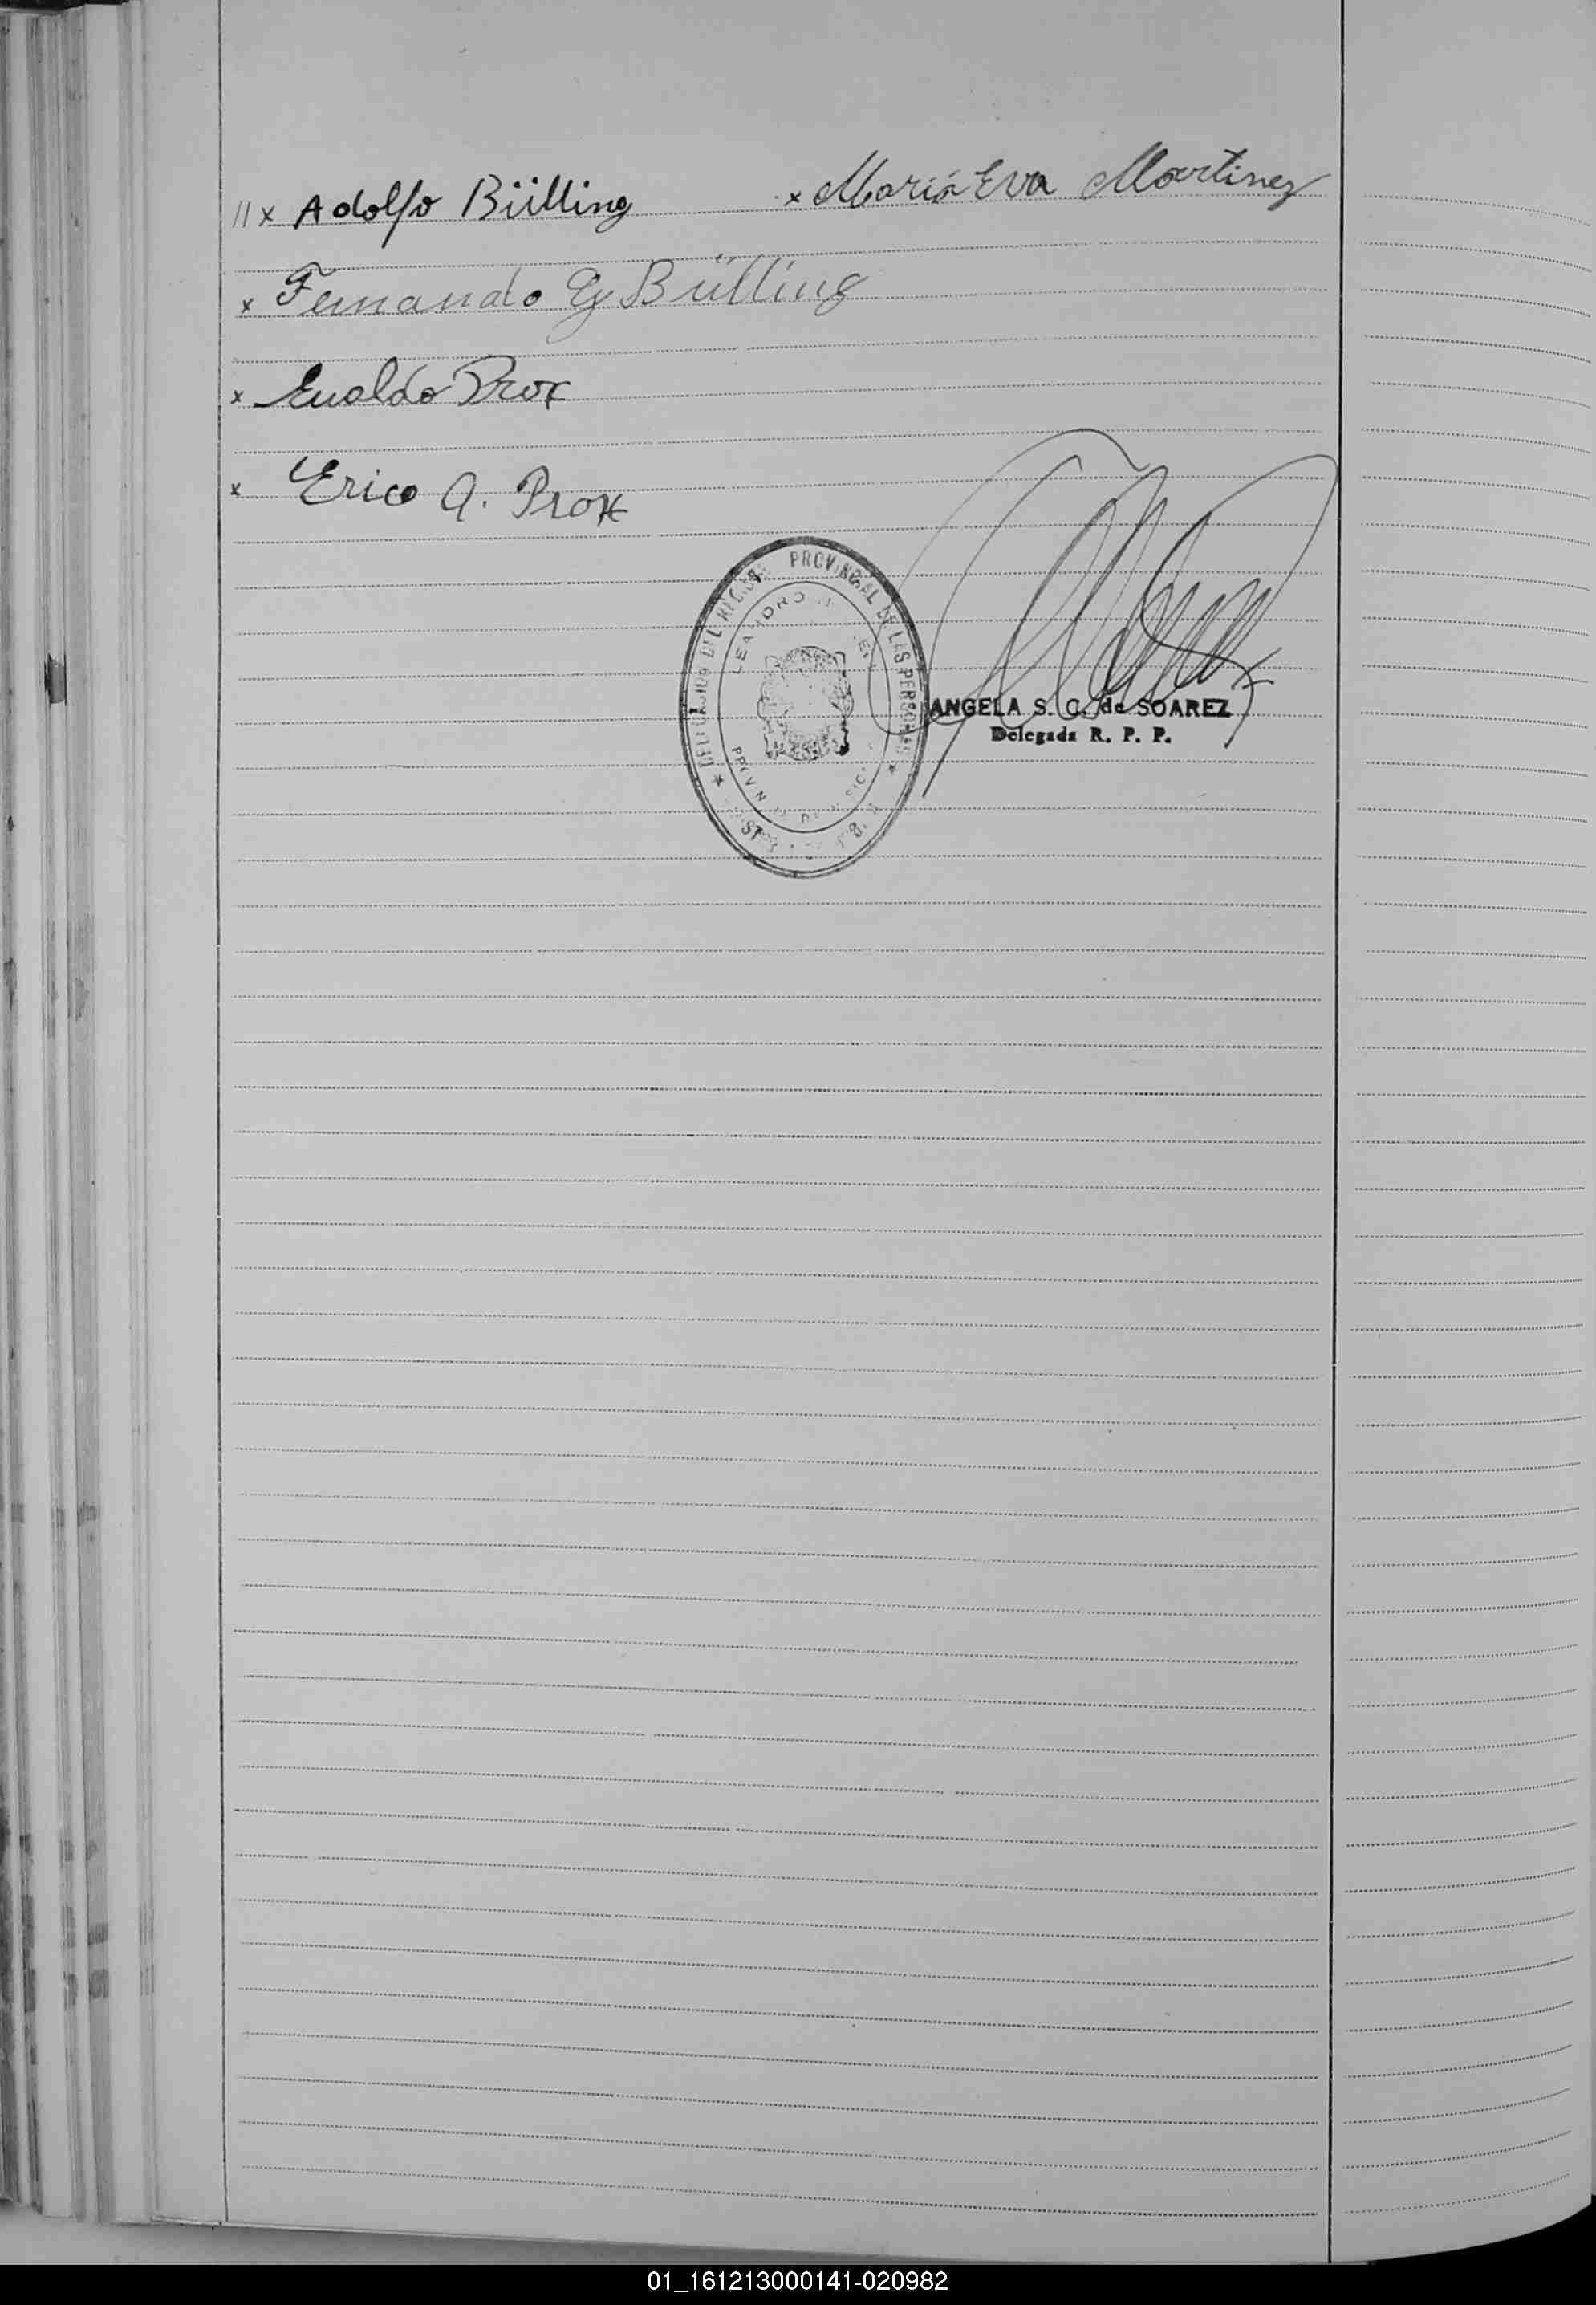 // x Adolfo Bülling x María Eva Martinez
x Fernando G Bülling
x Evaldo Prox
x Erico A. Prox
DELEGACION DEL REGISTRO PROVINCIAL DE LAS PERSONAS
LEANDRO N.
ANGELA S. C. de SOAREZ
Delegada R. P. P.
01_161213000141-020982